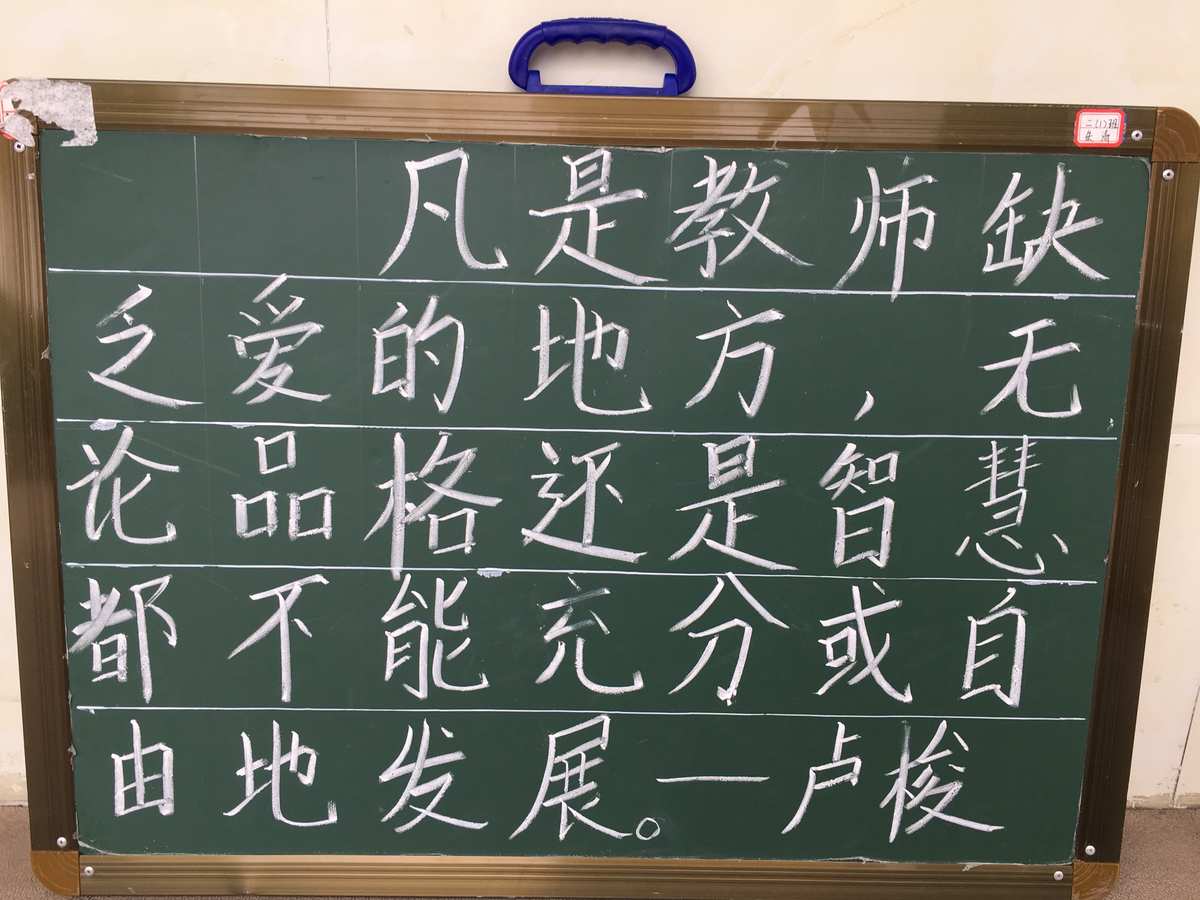 二(1)班
凡是教师缺
乏爱的地方，无
论品格还是智慧
都不能充分或自
由地发展。—卢梭